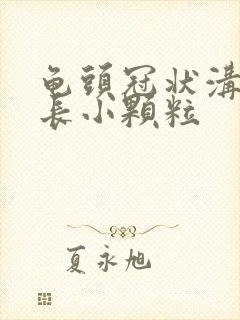 龟頭冠狀溝
長小顆粒
夏永旭